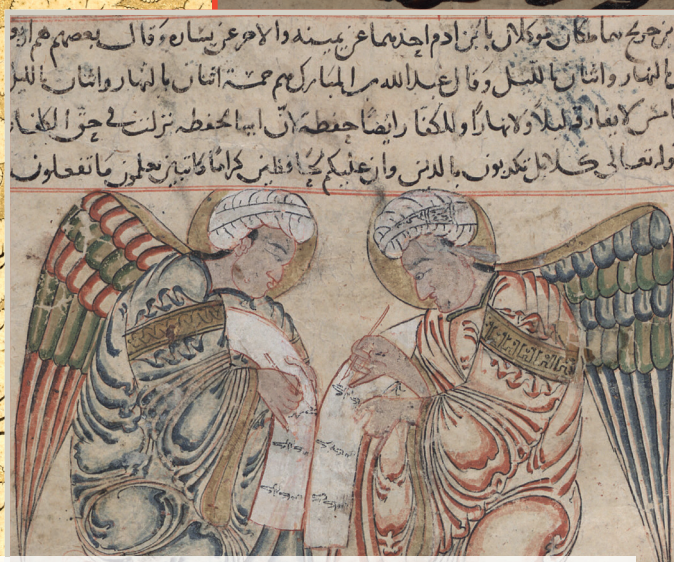 جريج هما ملكان موكلان بابن ادم احدهما عن يمينه والاخر عن يساره وقال بعضهم هم
النهار واثنان بالليل وقال عبد الله بن المبارك هم خمسة اثنان بالنهار واثنان بالليل
لا يفارق ليلا ولا نهارا وللكفار ايضا حفظة لان اية الحفظه نزلت في حق الكفار
قوله تعالى كلا بل تكذبون بالدين وان عليكم لحافظين كراما كاتبين يعلمون ما تفعلون